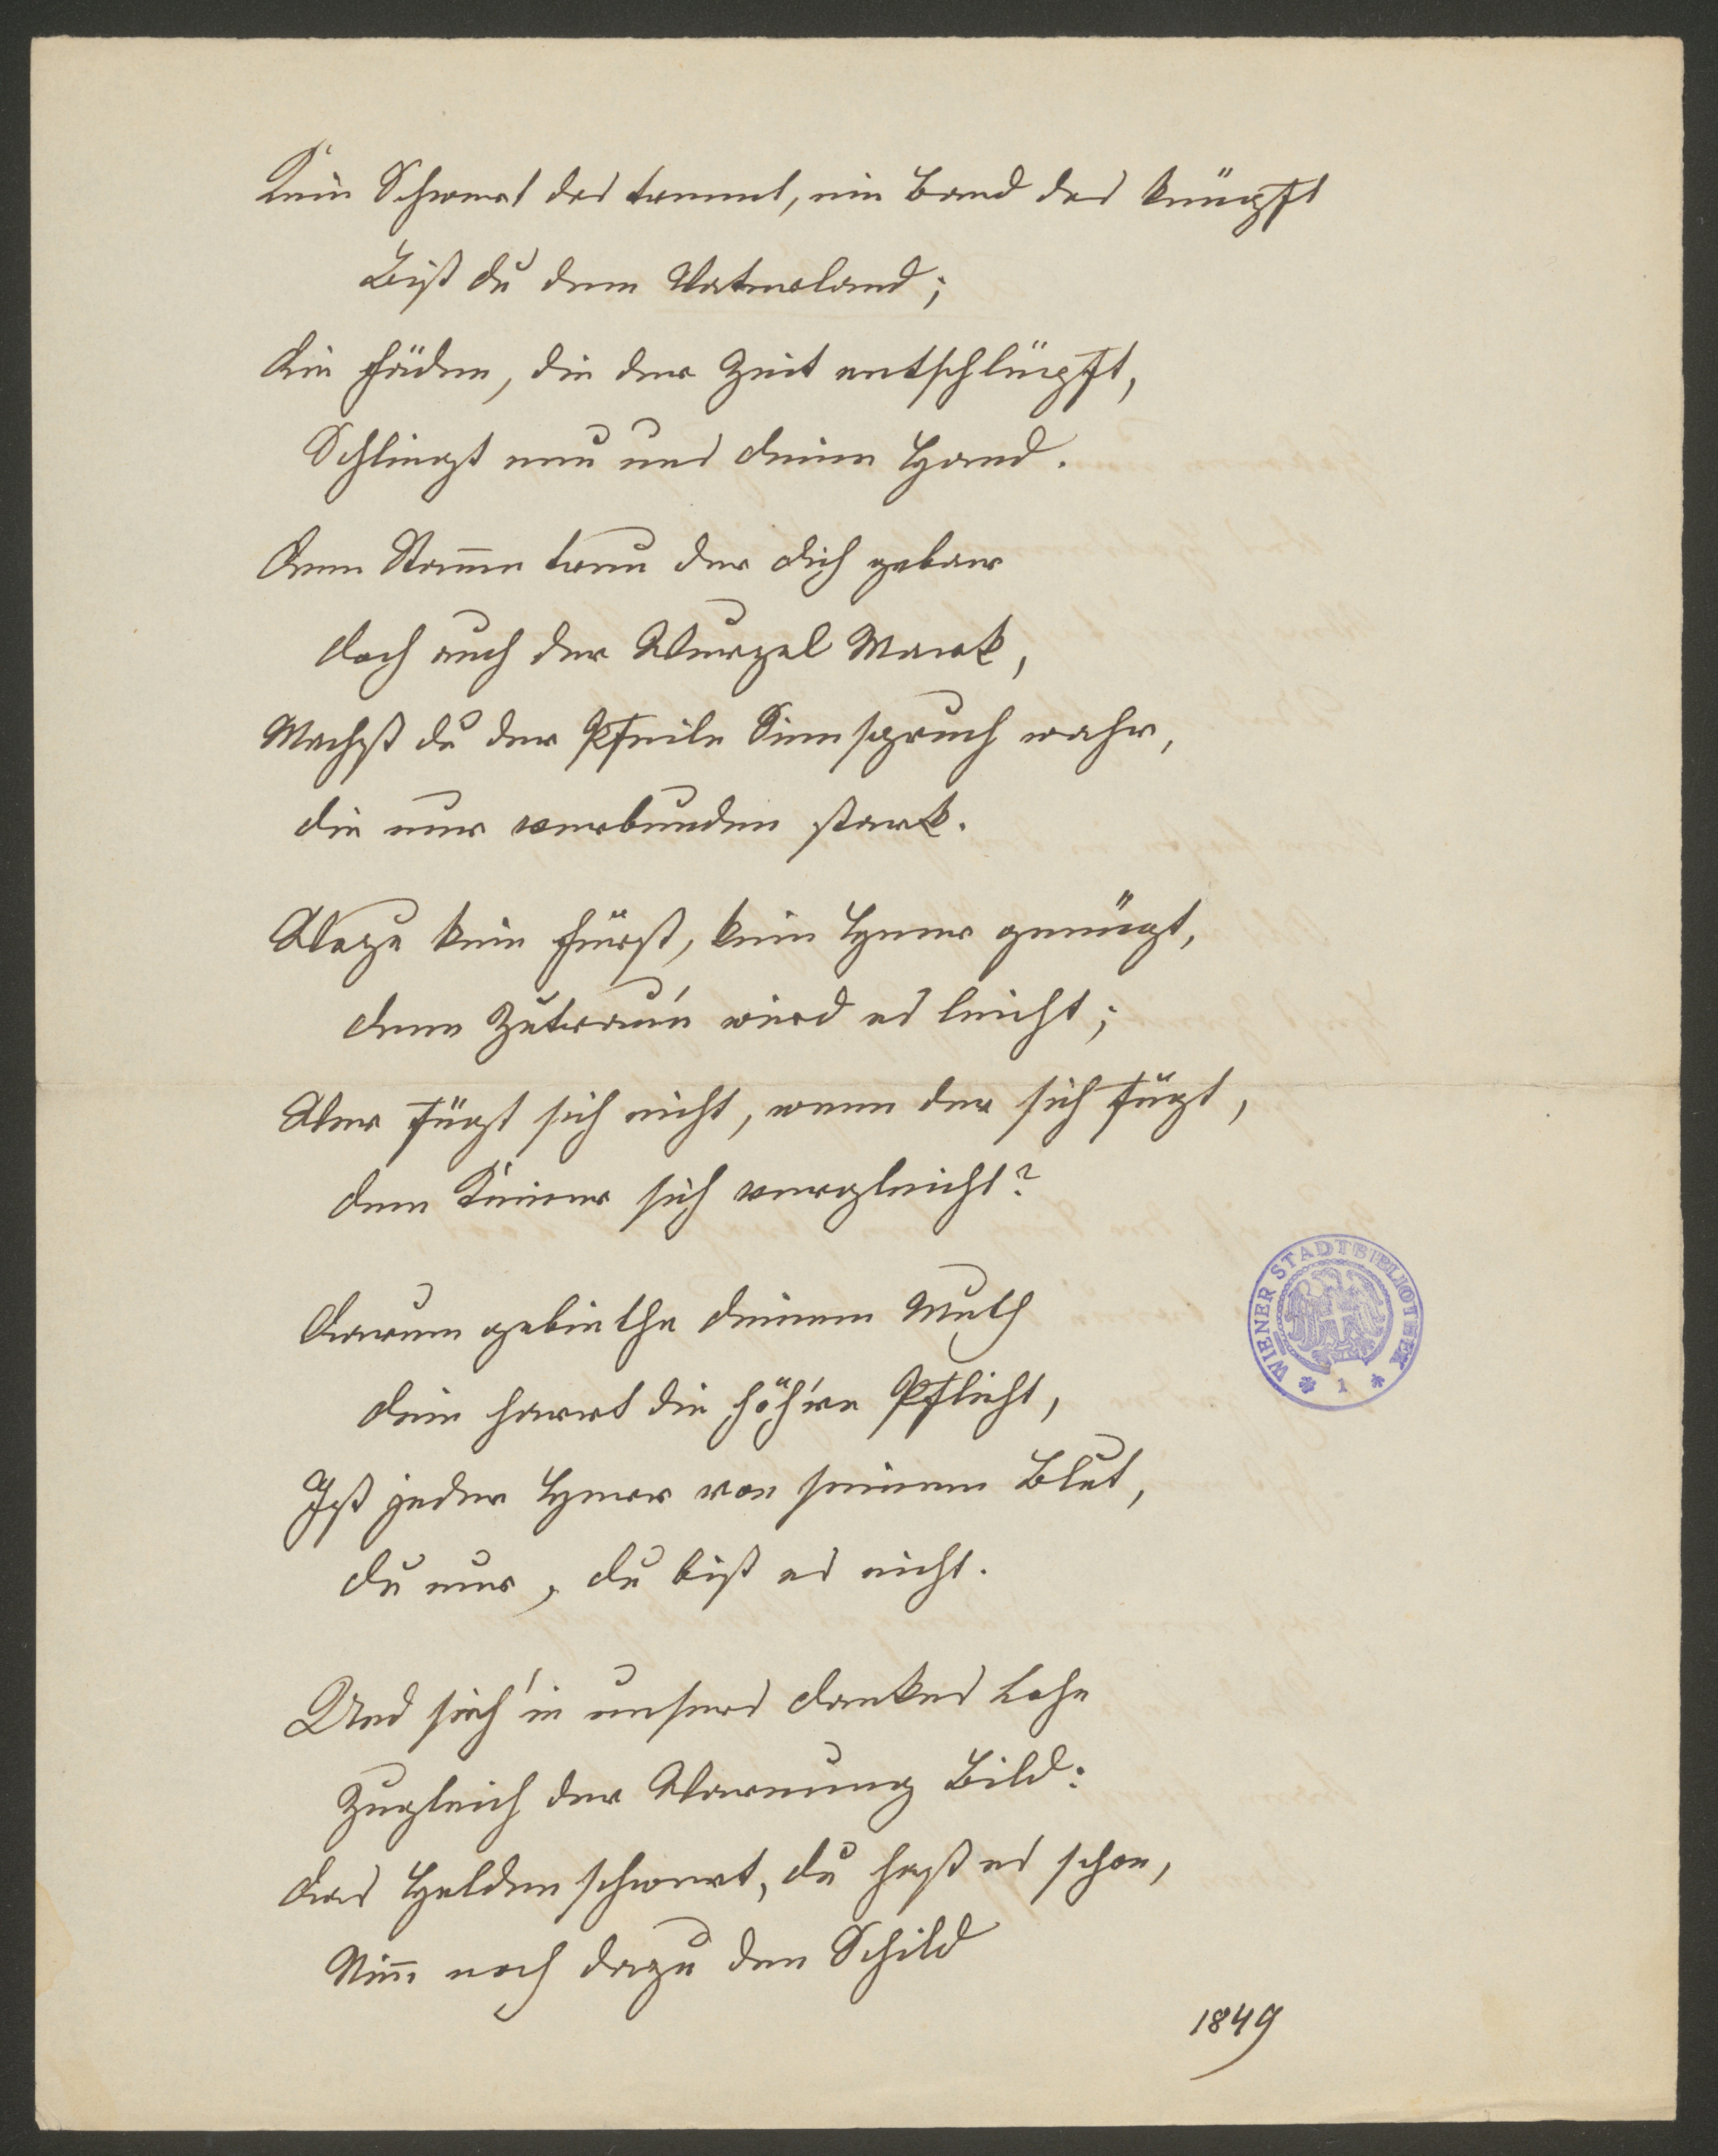 Kein Schwert das trennt, ein Band das knüpft
Bist du dem Vaterland;
Die Fäden, die der Zeit entschlüpft,
Schlingt neu uns deine Hand.
Dem Stamme treu der dich gebar
Doch auch der Wurzel Mark,
Machst du der Pfeile Sinnspruch wahr,
Die nur verbunden stark.
Wozu kein Fürst, kein Heer genügt,
Dem Zutrau'n wird es leicht;
Wer fügt sich nicht, wenn der sich fügt,
Dem Keiner sich vergleicht?
Darum gebiethe deinem Muth
Dein harrt die höh're Pflicht,
Ist jeder Herr von seinem Blut,
Du nur, du bist es nicht.
Und sieh' in unsers Dankes Lohn
Zugleich der Warnung Bild:
Das Heldenschwert, du hast es schon,
Nim̄ noch dazu den Schild
1849
WIENER STADTBIBLIOTHEK
* 1 *